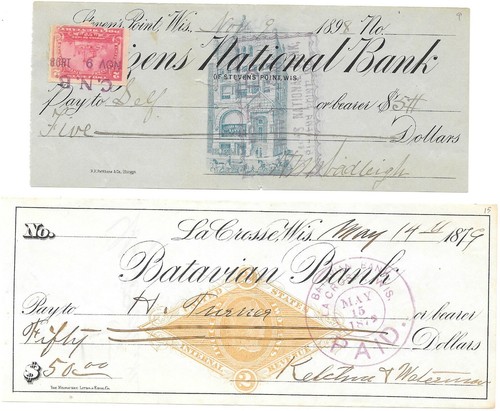 9
Steven's Point, Wis. Nov 9 1898 No.
Citizens National Bank
OF STEVENS' POINT, WIS.
NOV 9, 1898
C.N.B.
Pay to Self or bearer $5
Five Dollars
15
No. La Crosse, Wis. May 14 1879
Batavian Bank
UNITED STATES
BATAVIAN BANK
LA CROSSE, WIS.
MAY
15
1879
PAID.
Pay to H. Turner or bearer
Fifty Dollars
INTERNAL REVENUE
2
$50.00
Ketchum & Waterman